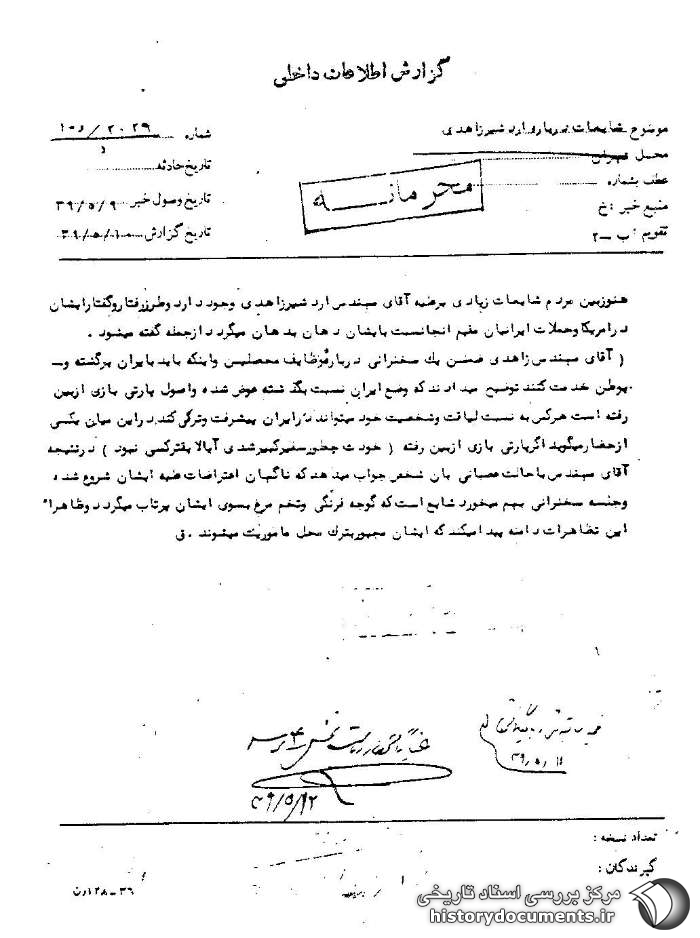 گزارش اطلاعات داخلی
موضوع شایعات درباره ارد شیرزاهدی
محل تهران
عطف بشماره
منبع خبر : خ
تقویم : ب ـ ۲
شماره ۲۰۲۹ / ۱۰۵
تاریخ حادثه
تاریخ وصول خبر ۳۹/۵/۹
تاریخ گزارش ۳۹/۵/۱۰
محرمانــه
هنوزبین مردم شایعات زیادی برعلیه آقای مهندس ارد شیرزاهدی وجود دارد وطرز رفتار و گفتار ایشان
در امریکا وحملات ایرانیان مقیم انجا نسبت بایشان دهان بدهان میگردد ازجمله گفته میشود .
( آقای مهندس زاهدی ضمن یك سخنرانی درباره وظایف محصلین واینکه باید بایران برگشته و ـ
بوطن خدمت کنند توضیح میدادند که وضع ایران نسبت بگذشته عوض شده واصول پارتی بازی ازبین
رفته است هرکس به نسبت لیاقت وشخصیت خود میتواند در ایران پیشرفت وترقی کند دراین میان یکی
ازحضار میگوید اگر پارتی بازی ازبین رفته ( خودت چطور سفیر کبیر شدی آیا لایقتر کسی نبود ) درنتیجه
آقای مهندس با حالت عصبانی بان شخص جواب میدهد که ناگهان اعتراضات علیه ایشان شروع شده
وجلسه سخنرانی بهم میخورد شایع است که گوجه فرنگی وتخم مرغ بسوی ایشان پرتاب میگردد وظاهراً
این تظاهرات دامنه پیدا میکند که ایشان مجبور بترك محل ماموریت میشوند . ق
۳۹/۵/۱۱
۳۹/۵/۱۲
تعداد نسخه :
گیرندگان :
۳۶ ـ ۱۲۸ رن
مرکز بررسی اسناد تاریخی
historydocuments.ir